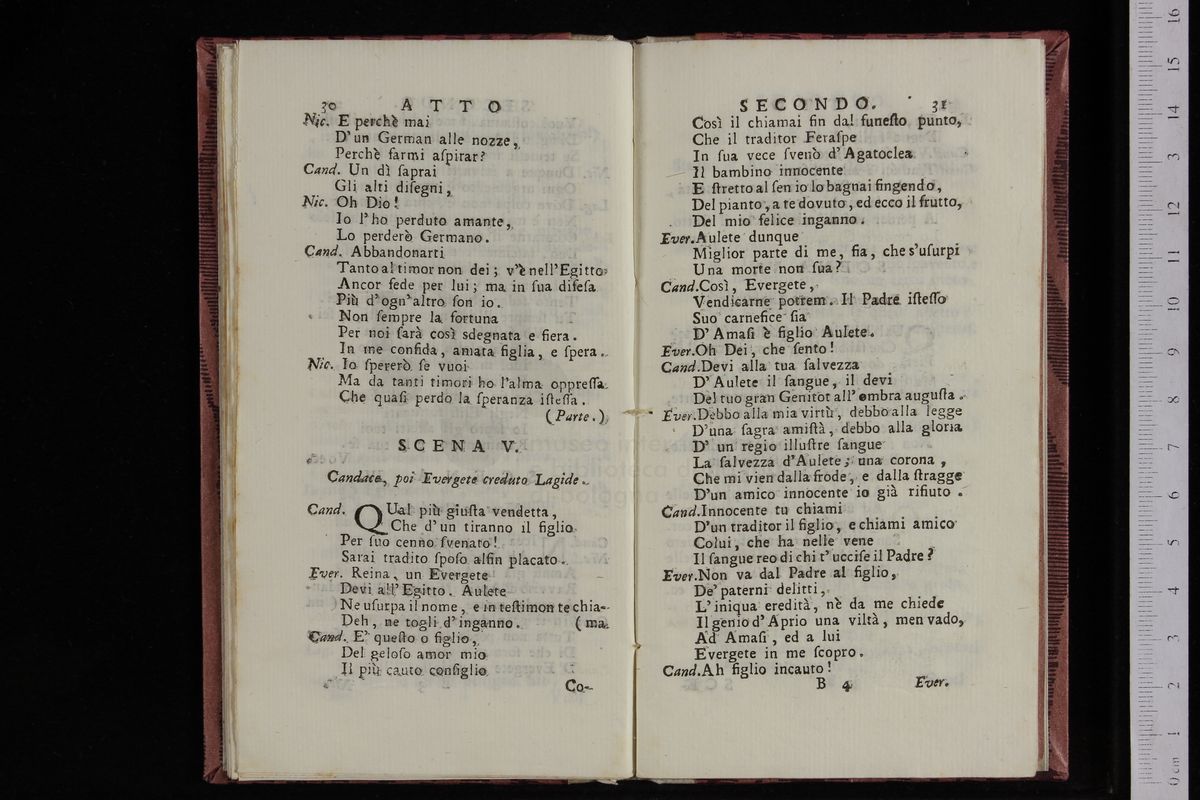 30 ATTO
Nic. E perchè mai
D'un German alle nozze,
Perchè farmi aſpirar?
Cand. Un dì ſaprai
Gli alti diſegni,
Nic. Oh Dio!
Io l'ho perduto amante,
Lo perderò Germano.
Cand. Abbandonarti
Tanto al timor non dei; v'è nell'Egitto
Ancor fede per lui; ma in ſua difeſa
Più d'ogn'altro ſon io.
Non ſempre la fortuna
Per noi ſarà così sdegnata e fiera.
In me confida, amata figlia, e ſpera.
Nic. Io ſpererò ſe vuoi
Ma da tanti timori ho l'alma oppreſſa
Che quaſi perdo la ſperanza iſteſſa.
(Parte.)
SCENA V.
Candace, poi Evergete creduto Lagide.
Cand. QUal più giuſta vendetta,
Che d'un tiranno il figlio
Per ſuo cenno ſvenato!
Sarai tradito ſpoſo alfin placato.
Ever. Reina, un Evergete
Devi all'Egitto. Aulete
Ne uſurpa il nome, e in teſtimon te chia-
Deh, ne togli d'inganno. (ma.
Cand. E' queſto o figlio,
Del geloſo amor mio
Il più cauto conſiglio
Co-
SECONDO. 31
Così il chiamai fin dal funeſto punto,
Che il traditor Feraſpe
In ſua vece ſvenò d'Agatoclea
Il bambino innocente
E ſtretto al ſen io lo bagnai fingendo,
Del pianto, a te dovuto, ed ecco il frutto,
Del mio felice inganno.
Ever. Aulete dunque
Miglior parte di me, fia, che s'uſurpi
Una morte non ſua?
Cand. Così, Evergete,
Vendicarne potrem. Il Padre iſteſſo
Suo carnefice ſia
D'Amaſi è figlio Aulete.
Ever. Oh Dei, che ſento!
Cand. Devi alla tua ſalvezza
D'Aulete il ſangue, il devi
Del tuo gran Genitor all'ombra auguſta.
Ever. Debbo alla mia virtù, debbo alla legge
D'una ſagra amiſtà, debbo alla gloria
D'un regio illuſtre ſangue
La ſalvezza d'Aulete; una corona,
Che mi vien dalla frode, e dalla ſtragge
D'un amico innocente io già rifiuto.
Cand. Innocente tu chiami
D'un traditor il figlio, e chiami amico
Colui, che ha nelle vene
Il ſangue reo di chi t'ucciſe il Padre?
Ever. Non va dal Padre al figlio,
De' paterni delitti,
L'iniqua eredità, nè da me chiede
Il genio d'Aprio una viltà, men vado,
Ad Amaſi, ed a lui
Evergete in me ſcopro.
Cand. Ah figlio incauto!
B 4 Ever.